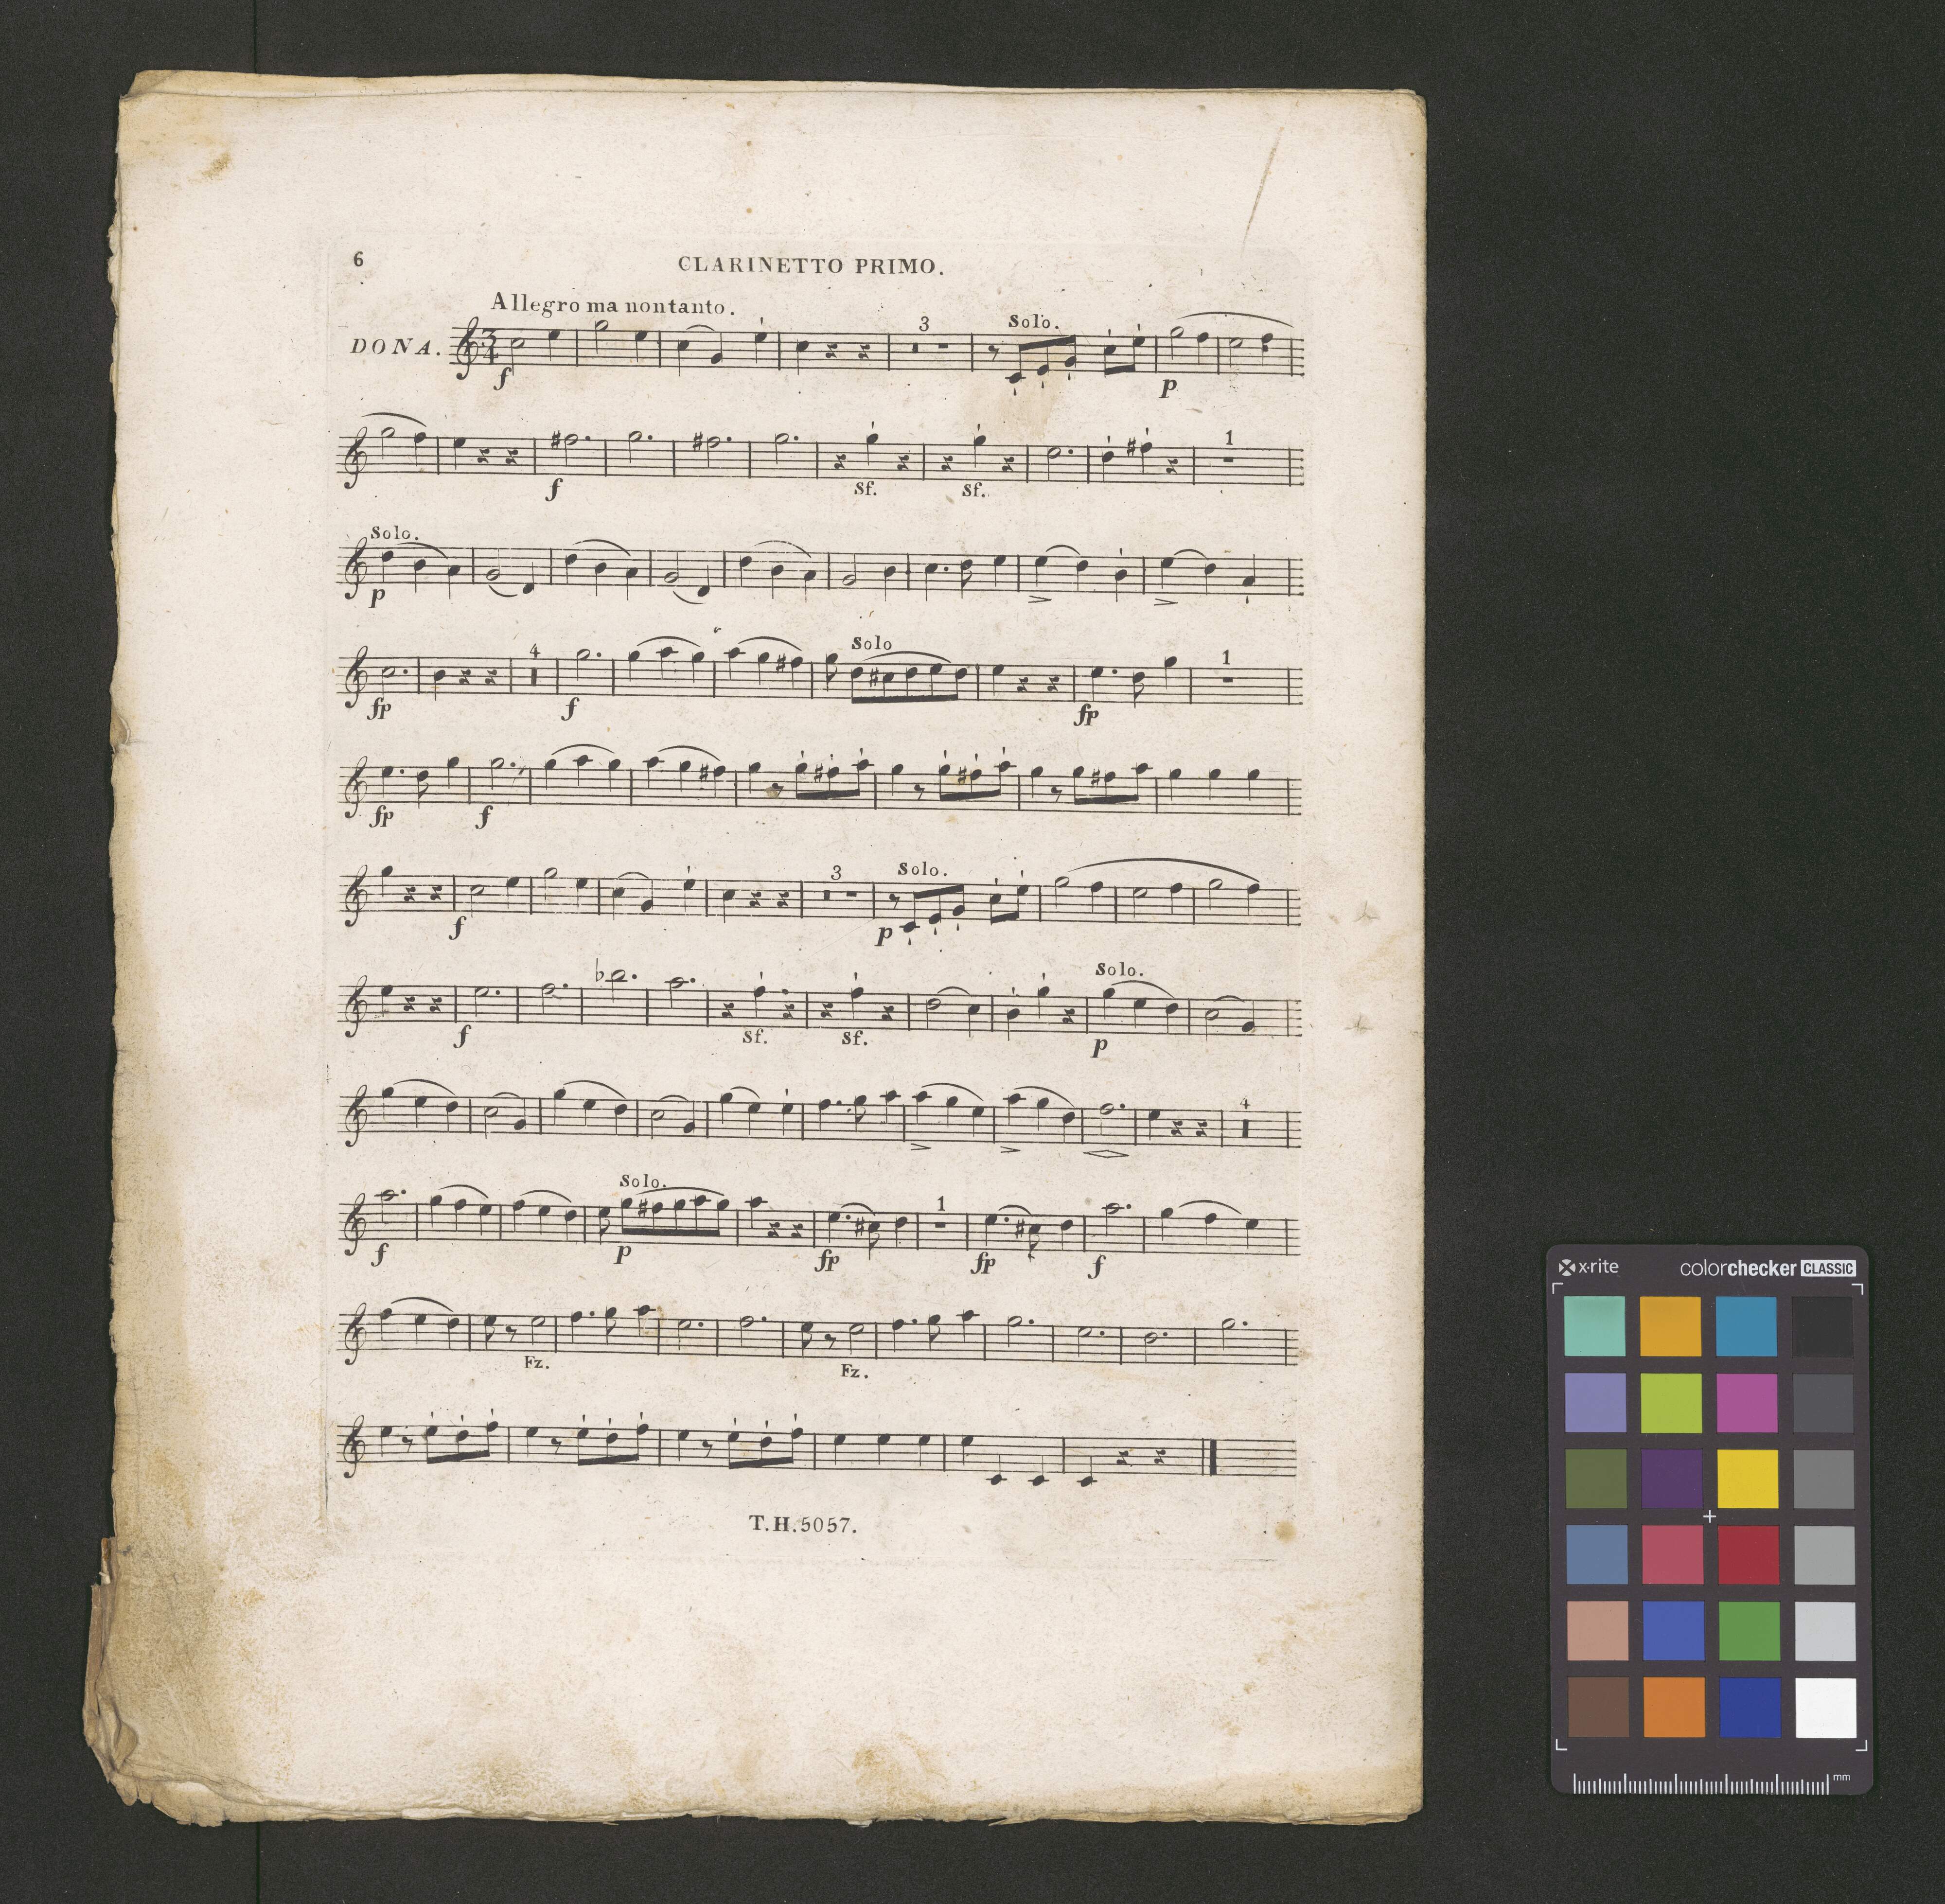 6
CLARINETTO PRIMO.
Allegro ma nontanto.
DONA.
3
4
f
3
Solo.
p
f
Sf.
Sf.
1
Solo.
p
fp
4
f
Solo
fp
1
fp
f
f
3
Solo.
p
f
Sf.
Sf.
Solo.
p
4
f
Solo.
p
fp
1
fp
f
Fz.
Fz.
T.H.5057.
x-rite
colorchecker CLASSIC
mm